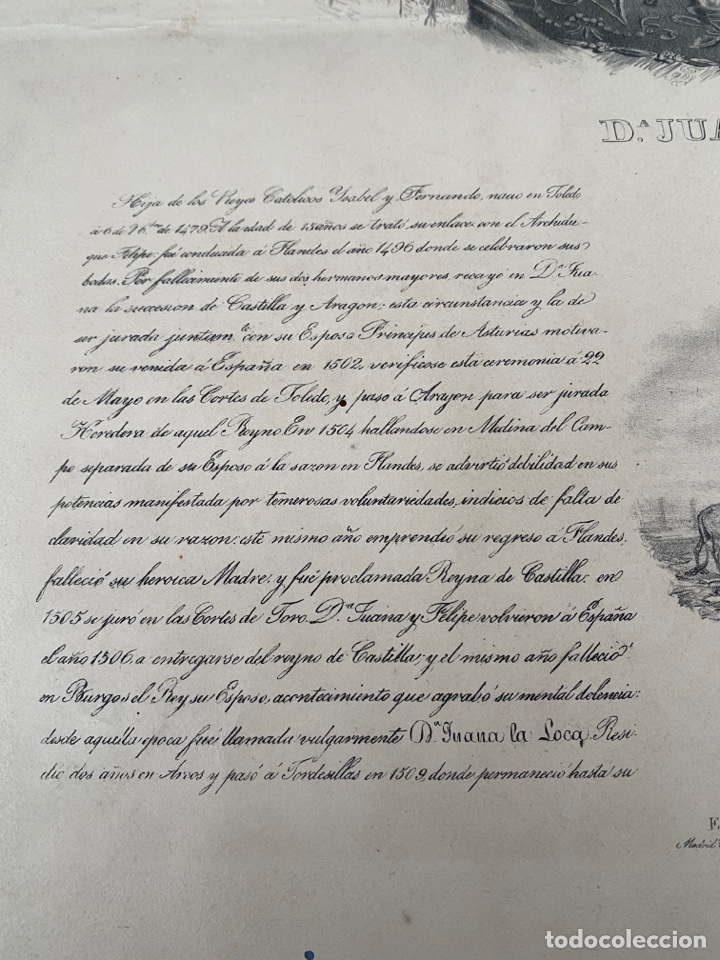 D.ᴬ JUA
Hija de los Reyes Catolicos Ysabel y Fernando, nacio en Toledo
á 6 de 9b.ʳᵉ de 1479. A la edad de 15 años se trató su enlace con el Archidu-
que Felipe: fué conducida á Flandes el año 1496 donde se celebraron sus
bodas. Por fallecimiento de sus dos hermanos mayores, recayó en D.ª Jua-
na la succesion de Castilla y Aragon; esta circunstancia y la de
ser jurada juntam.ᵗᵉ con su Esposo Principes de Asturias motiva-
ron su venida á España en 1502, verificose esta ceremonia á 22
de Mayo en las Cortes de Toledo, y paso á Aragon para ser jurada
Heredera de aquel Reyno. En 1504 hallandose en Medina del Cam-
po separada de su Esposo á la sazon en Flandes, se advirtió debilidad en sus
potencias manifestada por temerosas voluntariedades, indicios de falta de
claridad en su razon: este mismo año emprendió su regreso á Flandes,
falleció su heroica Madre, y fué proclamada Reyna de Castilla; en
1505 se juró en las Cortes de Toro. D.ª Juana y Felipe volvieron á España
el año 1506, a entregarse del reyno de Castilla; y el mismo año falleció
en Burgos el Rey su Esposo, acontecimiento que agrabó su mental dolencia:
desde aquella epoca fué llamada vulgarmente D.ª Juana la Loca. Resi-
dio dos años en Arcos y pasó á Tordesillas en 1509, donde permaneció hasta su
Madrid
todocoleccion
todocoleccion.net